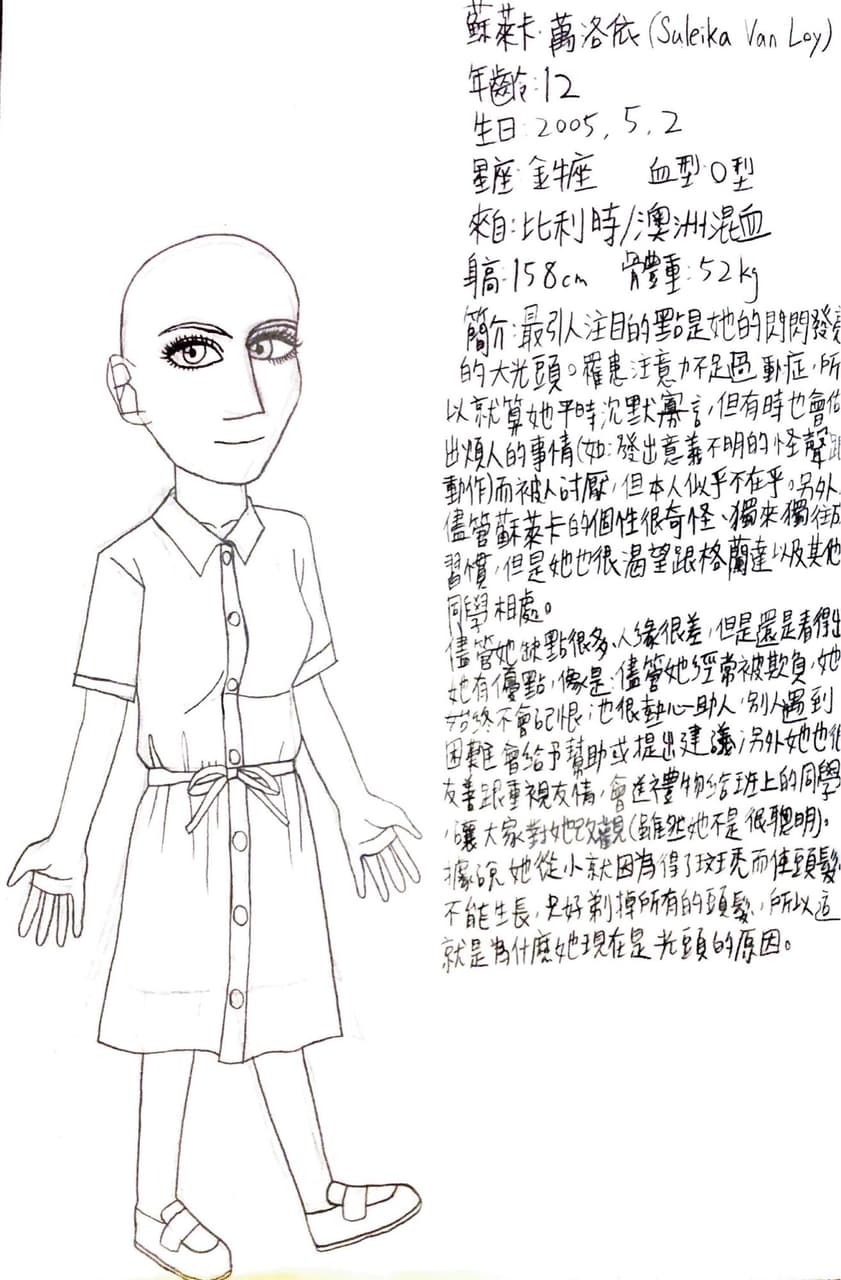 蘇萊卡·萬洛依(Suleika Van Loy)
年齡:12
生日:2005.5.2
星座:金牛座 血型:O型
來自:比利時/澳洲混血
身高:158cm 體重:52kg
簡介:最引人注目的點是她的閃閃發亮
的大光頭。罹患注意力不足過動症,所
以就算她平時沉默寡言,但有時也會做
出煩人的事情(如:發出意義不明的怪聲跟
動作)而被人討厭,但本人似乎不在乎。另外,
儘管蘇萊卡的個性很奇怪、獨來獨往成
習慣,但是她也很渴望跟格蘭達以及其他
同學相處。
儘管她缺點很多、人緣很差,但是還是看得出
她有優點,像是:儘管她經常被欺負,她
始終不會記恨;也很熱心助人,別人遇到
困難會給予幫助或提出建議;另外她也很
友善跟重視友情,會送禮物給班上的同學
,讓大家對她改觀(雖然她不是很聰明)。
據說她從小就因為得了斑禿而使頭髮
不能生長,只好剃掉所有的頭髮,所以這
就是為什麼她現在是光頭的原因。